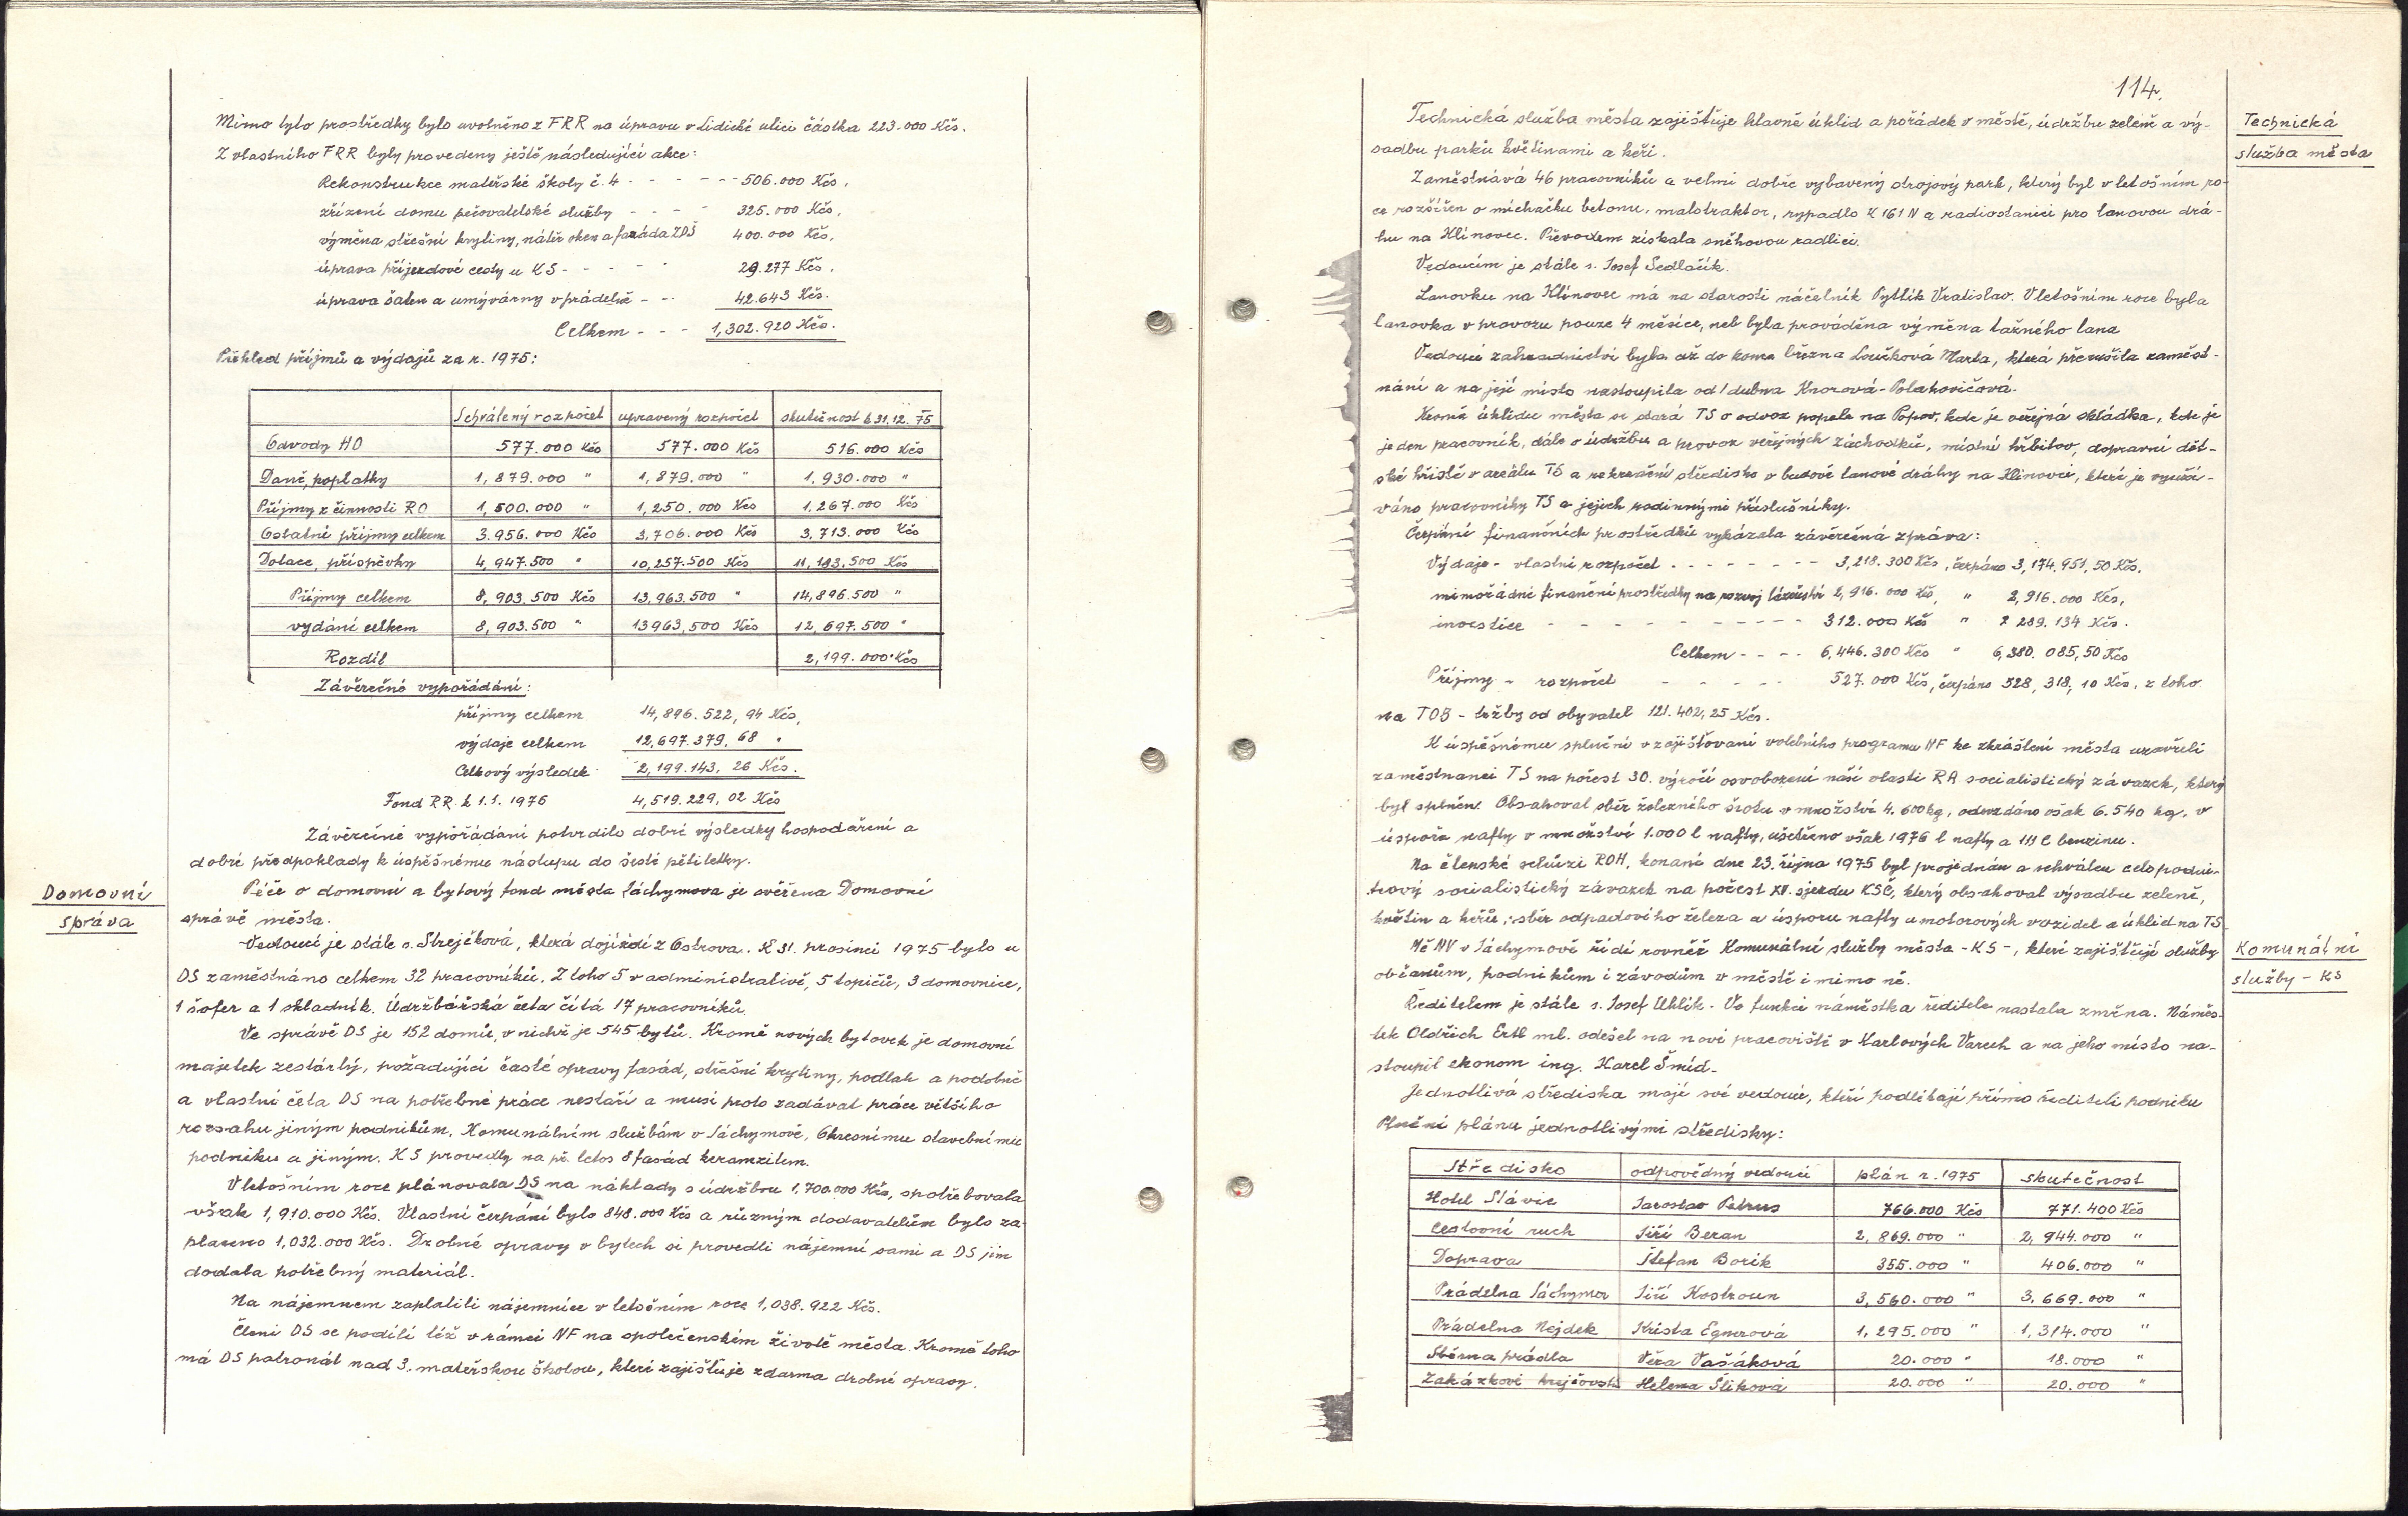 Mimo tyto prostředky bylo uvolněno z FRR na úpravu v Lidické ulici částka 223.000 Kčs.
Z vlastního FRR byly provedeny ještě následující akce:
Rekonstrukce mateřské školy č. 4 - - - - - 506.000 Kčs,
zřízení domu pečovatelské služby - - - - 325.000 Kčs,
výměna střešní krytiny, nátěr oken a fasáda ZDŠ 400.000 Kčs,
úprava příjezdové cesty u KS - - - - - 29.277 Kčs,
úprava šaten a umývárny v prádelně - - 42.643 Kčs.
Celkem - - - 1,302.920 Kčs.
Přehled příjmů a výdajů za r. 1975:
Schválený rozpočet upravený rozpočet skutečnost k 31.12. 75
Odvody HO 577.000 Kčs 577.000 Kčs 516.000 Kčs
Daně, poplatky 1,879.000 " 1,879.000 " 1,930.000 "
Příjmy z činnosti RO 1,500.000 " 1,250.000 Kčs 1,267.000 Kčs
Ostatní příjmy celkem 3.956.000 Kčs 3,706.000 Kčs 3,713.000 Kčs
Dotace, příspěvky 4,947.500 " 10,257.500 Kčs 11,183,500 Kčs
Příjmy celkem 8,903.500 Kčs 13,963.500 " 14,896.500 "
vydání celkem 8,903.500 " 13963,500 Kčs 12,697.500 "
Rozdíl 2,199.000 Kčs
Závěrečné vypořádání:
příjmy celkem 14,896.522,94 Kčs,
výdaje celkem 12,697.379,68 "
Celkový výsledek 2,199.143,26 Kčs.
Fond RR k 1.1. 1976 4,519.229,02 Kčs
Závěrečné vypořádání potvrdilo dobré výsledky hospodaření a
dobré předpoklady k úspěšnému nástupu do šesté pětiletky.
Domovní
správa
Péče o domovní a bytový fond města Jáchymova je svěřena Domovní
správě města.
Vedoucí je stále s. Strejčková, která dojíždí z Ostrova. K 31. prosinci 1975 bylo u
DS zaměstnáno celkem 32 pracovníků. Z toho 5 v administrativě, 5 topičů, 3 domovnice,
1 šofer a 1 skladník. Údržbářská četa čítá 17 pracovníků.
Ve správě DS je 152 domů, v nichž je 545 bytů. Kromě nových bytovek je domovní
majetek zestárlý, požadující časté opravy fasád, střešní krytiny, podlah a podobně
a vlastní četa DS na potřebné práce nestačí a musí proto zadávat práce většího
rozsahu jiným podnikům, Komunálním službám v Jáchymově, Okresnímu stavebnímu
podniku a jiným. KS provedly na př. letos 8 fasád keramzitem.
V letošním roce plánovala DS na náklady s údržbou 1,700.000 Kčs, spotřebovala
však 1,910.000 Kčs. Vlastní čerpání bylo 848.000 Kčs a různým dodavatelům bylo za-
placeno 1,032.000 Kčs. Drobné opravy v bytech si provedli nájemní sami a DS jim
dodala potřebný materiál.
Na nájemném zaplatili nájemníce v letošním roce 1,038.922 Kčs.
Členi DS se podílí též v rámci NF na společenském životě města. Kromě toho
má DS patronát nad 3. mateřskou školou, které zajišťuje zdarma drobné opravy.
114.
Technická
služba města
Technická služba města zajišťuje hlavně úklid a pořádek v městě, údržbu zeleně a vý-
sadbu parků květinami a keři.
Zaměstnává 46 pracovníků a velmi dobře vybavený strojový park, který byl v letošním ro-
ce rozšířen o míchačku betonu, malotraktor, rypadlo K 161 N a radiostanici pro lanovou drá-
hu na Klínovec. Převodem získala sněhovou radlici.
Vedoucím je stále s. Josef Sedlačík.
Lanovku na Klínovec má na starosti náčelník Pytlík Vratislav. V letošním roce byla
lanovka v provozu pouze 4 měsíce, neb byla prováděna výměna tažného lana
Vedoucí zahradnictví byla až do konce března Loučková Marta, která přerušila zaměst-
nání a na její místo nastoupila od 1 dubna Knorová-Polahovičová.
Kromě úklidu města se stará TS o odvoz popela na Popov, kde je veřejná skládka, kde je
jeden pracovník, dále o údržbu a provoz veřejných záchodků, místní hřbitov, dopravní dět-
ské hřiště v areálu TS a rekreační středisko v budově lanové dráhy na Klínovci, které je využí-
váno pracovníky TS a jejich rodinnými příslušníky.
Čerpání finančních prostředků vykázala závěrečná zpráva:
Výdaje - vlastní rozpočet - - - - - - - - 3,218.300 Kčs, čerpáno 3,174.951,50 Kčs.
mimořádné finanční prostředky na rozvoj lázeňství 2,916.000 Kčs, " 2,916.000 Kčs,
investice - - - - - - - - - - 312.000 Kčs " 289.134 Kčs.
Celkem - - - - 6,446.300 Kčs " 6,380.085,50 Kčs
Příjmy - rozpočet - - - - - 527.000 Kčs, čerpáno 528,318,10 Kčs, z toho
na TOB - tržby od obyvatel 121.402,25 Kčs.
K úspěšnému splnění v zajišťování volebního programu NF ke zkrášlení města uzavřeli
zaměstnanci TS na počest 30. výročí osvobození naší vlasti RA socialistický závazek, který
byl splněn. Obsahoval sběr železného šrotu v množství 4.600 kg, odevzdáno však 6.540 kg, v
úspoře nafty v množství 1.000 l nafty, ušetřeno však 1976 l nafty a 111 l benzinu.
Na členské schůzi ROH, konané dne 23. října 1975 byl projednán a schválen celopodni-
kový socialistický závazek na počest XV. sjezdu KSČ, který obsahoval výsadbu zeleně,
květin a keřů, sběr odpadového železa a úsporu nafty u motorových vozidel a úklid na TS.
Komunální
služby - KS
MěNV v Jáchymově řídí rovněž Komunální služby města - KS -, které zajišťují služby
občanům, podnikům i závodům v městě i mimo ně.
Ředitelem je stále s. Josef Uhlík. Ve funkci náměstka ředitele nastala změna. Náměs-
tek Oldřich Ertl ml. odešel na nové pracoviště v Karlových Varech a na jeho místo na-
stoupil ekonom ing. Karel Šmíd.
Jednotlivá střediska mají své vedoucí, kteří podléhají přímo řediteli podniku
Plnění plánu jednotlivými středisky:
Středisko odpovědný vedoucí plán r. 1975 skutečnost
Hotel Slávie Jaroslav Petrus 766.000 Kčs 771.400 Kčs
Cestovní ruch Jiří Beran 2,869.000 " 2,944.000 "
Doprava Štefan Borik 355.000 " 406.000 "
Prádelna Jáchymov Jiří Kostroun 3,560.000 " 3,669.000 "
Prádelna Nejdek Krista Egnerová 1,295.000 " 1,314.000 "
Sběrna prádla Věra Vašáková 20.000 " 18.000 "
Zakázkové krejčovství Helena Šliková 20.000 " 20.000 "